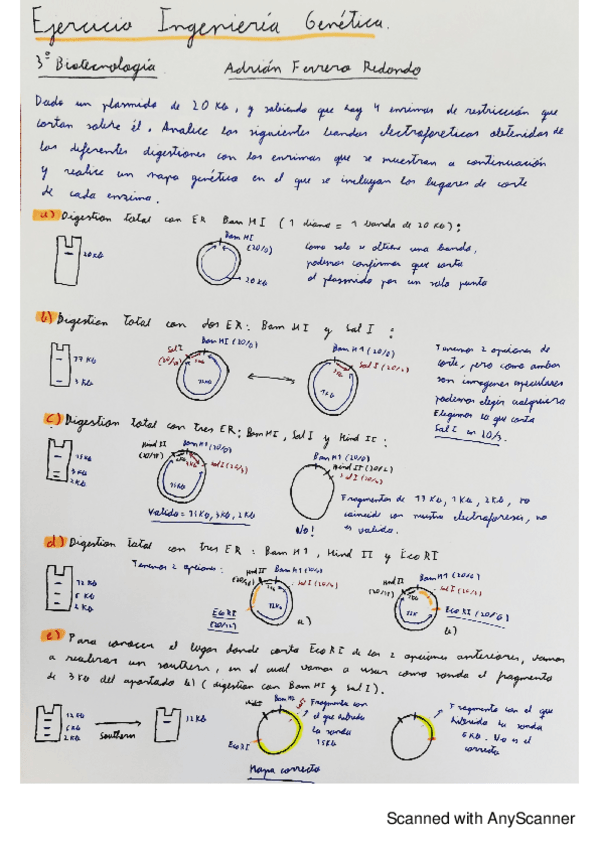 Ejercicio Ingeniería Genética.
3º Biotecnología
Adrián Ferrero Redondo
Dado un plasmido de 20 Kb, y sabiendo que hay 4 enzimas de restricción que
cortan sobre él. Analice las siguientes bandas electroforeticas obtenidas de
las diferentes digestiones con las enzimas que se muestran a continuación
y realice un mapa genético en el que se incluyan los lugares de corte
de cada enzima.
a) Digestion total con ER Bam HI (1 diana = 1 banda de 20 Kb):
20 Kb
Bam HI
(20/0)
20 Kb
Como solo se obtiene una banda,
podemos confirmar que corta
el plasmido por un solo punto
b) Digestion total con dos ER: Bam HI y Sal I :
17 Kb
3 Kb
Sal I
Bam HI (20/0)
Bam HI (20/0)
Sal I (20/3)
Tenemos 2 opciones de
corte, pero como ambas
son imagenes especulares
podemos elegir cualquiera
Elegimos la que corta
Sal I en 20/3.
c) Digestion total con tres ER: Bam HI, Sal I y Hind II :
15 Kb
3 Kb
2 Kb
Hind II
(20/18)
Bam HI (20/0)
Sal I (20/3)
15 Kb
Valido = 15 Kb, 3 Kb, 2 Kb
Bam HI (20/0)
Hind II (20/2)
Sal I (20/3)
No!
Fragmentos de 17 Kb, 1 Kb, 2 Kb, no
coincide con nuestra electroforesis, no
es valido.
d) Digestion total con tres ER : Bam HI, Hind II y Eco RI
Tenemos 2 opciones:
12 Kb
6 Kb
2 Kb
Hind II
(20/18)
Bam HI (20/0)
Sal I (20/3)
Eco RI
(20/12)
a)
Hind II
(20/18)
Bam HI (20/0)
Sal I (20/3)
Eco RI (20/6)
b)
e) Para conocer el lugar donde corta Eco RI de las 2 opciones anteriores, vamos
a realizar un southern, en el cual vamos a usar como sonda el fragmento
de 3 Kb del apartado b) (digestion con Bam HI y Sal I).
12 Kb
6 Kb
2 Kb
Southern
12 Kb
Bam HI
Eco RI
Fragmento con
el que hibrida
la sonda
Mapa correcto
Fragmento con el que
hibrida la sonda
6 Kb. No es el
correcto
Scanned with AnyScanner